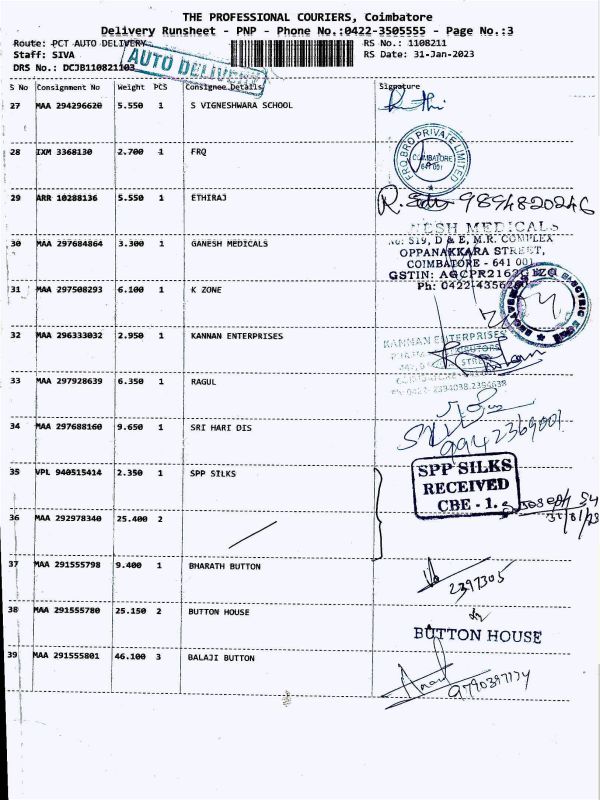 THE PROFESSIONAL COURIERS, Coimbatore
Delivery Runsheet - PNP - Phone No.:0422-3505555 - Page No.:3
Route: PCT AUTO DELIVERY
RS No.: 1108211
Staff: SIVA
RS Date: 31-Jan-2023
DRS No.: DCJB110821103
AUTO DELIVERY
S No Consignment No Weight PCS Consignee Details Signature
27 MAA 294296620 5.550 1 S VIGNESHWARA SCHOOL
28 IXM 3368130 2.700 1 FRQ
FRQ BRO PRIVATE LIMITED
COIMBATORE
641 001
29 ARR 10288136 5.550 1 ETHIRAJ
9894820246
30 MAA 297684864 3.300 1 GANESH MEDICALS
NESH MEDICALS
No: 519, D & E, M.R. COMPLEX
OPPANAKKARA STREET,
COIMBATORE - 641 001
GSTIN: AGCPR2162
Ph: 0422-4356280
31 MAA 297508293 6.100 1 K ZONE
32 MAA 296333032 2.950 1 KANNAN ENTERPRISES
KANNAN ENTERPRISES
33 MAA 297928639 6.350 1 RAGUL
34 MAA 297688160 9.650 1 SRI HARI DIS
9942369001
35 VPL 940515414 2.350 1 SPP SILKS
SPP SILKS
RECEIVED
CBE - 1.
36 MAA 292978340 25.400 2
31/01/23
37 MAA 291555798 9.400 1 BHARATH BUTTON
2397305
38 MAA 291555780 25.150 2 BUTTON HOUSE
BUTTON HOUSE
39 MAA 291555801 46.100 3 BALAJI BUTTON